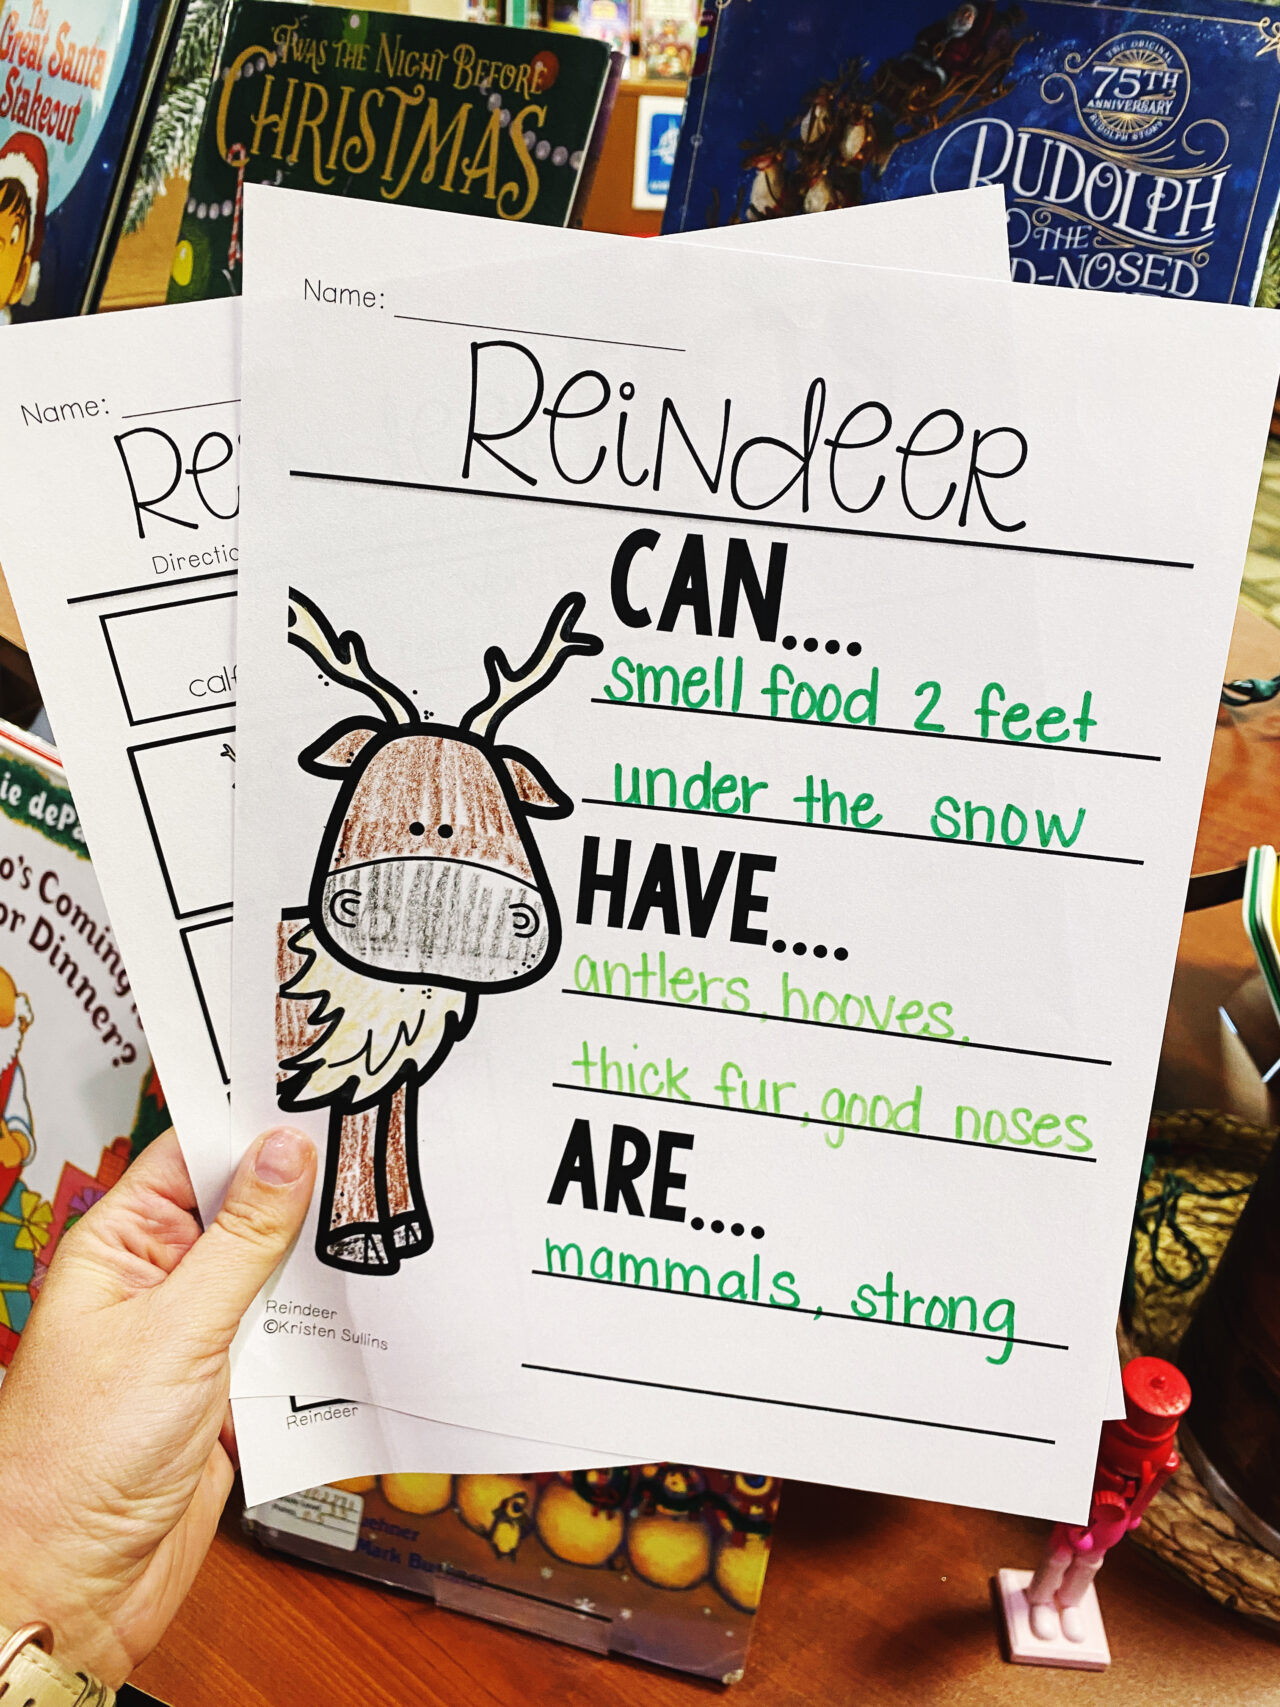 The
Great Santa
Stakeout
'TWAS THE NIGHT BEFORE
CHRISTMAS
THE ORIGINAL
75TH
ANNIVERSARY
RUDOLPH STORY
RUDOLPH
THE
D-NOSED
Name:
Reindeer
CAN....
smell food 2 feet
under the snow
HAVE....
antlers, hooves,
thick fur, good noses
ARE....
mammals, strong
Reindeer
©Kristen Sullins
Name:
Re
Directio
calf
Reindeer
ie dePa
o's Coming
or Dinner?
ehner
Mark Bu